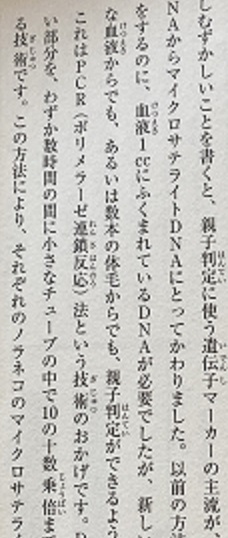 しむずかしいことを書くと、親子判定に使う遺伝子マーカーの主流が、
NAからマイクロサテライトDNAにとってかわりました。以前の方法
をするのに、血液1ccにふくまれているDNAが必要でしたが、新しい
な血液からでも、あるいは数本の体毛からでも、親子判定ができるよう
これはPCR(ポリメラーゼ連鎖反応)法という技術のおかげです。D
い部分を、わずか数時間の間に小さなチューブの中で10の十数乗倍ま
る技術です。この方法により、それぞれのノラネコのマイクロサテライ